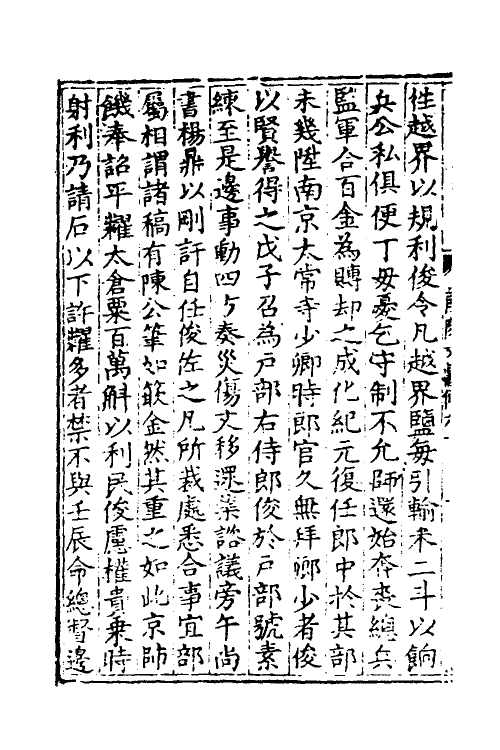 徃越界以規利俊令凡越界鹽每引輸米二斗以餉
兵公私俱便丁毋憂乞守制不允師還始奔喪總兵
監軍合百金為賻却之成化紀元復任郎中於其部
未幾陞南京太常寺少卿時郎官久無拜卿少者俊
以賢譽得之戊子召為戶部右侍郎俊於戶部號素
練至是邊事動四方奏災傷文移遝業諮議旁午尚
書楊鼎以剛訐自任俊佐之凡所裁處悉合事宜部
屬相謂諸稿有陳公筆如篏金然其重之如此京師
饑奉詔平糶太倉粟百萬斛以利民俊慮權貴乗時
射利乃請石以下許糶多者禁不與壬辰命總督邊